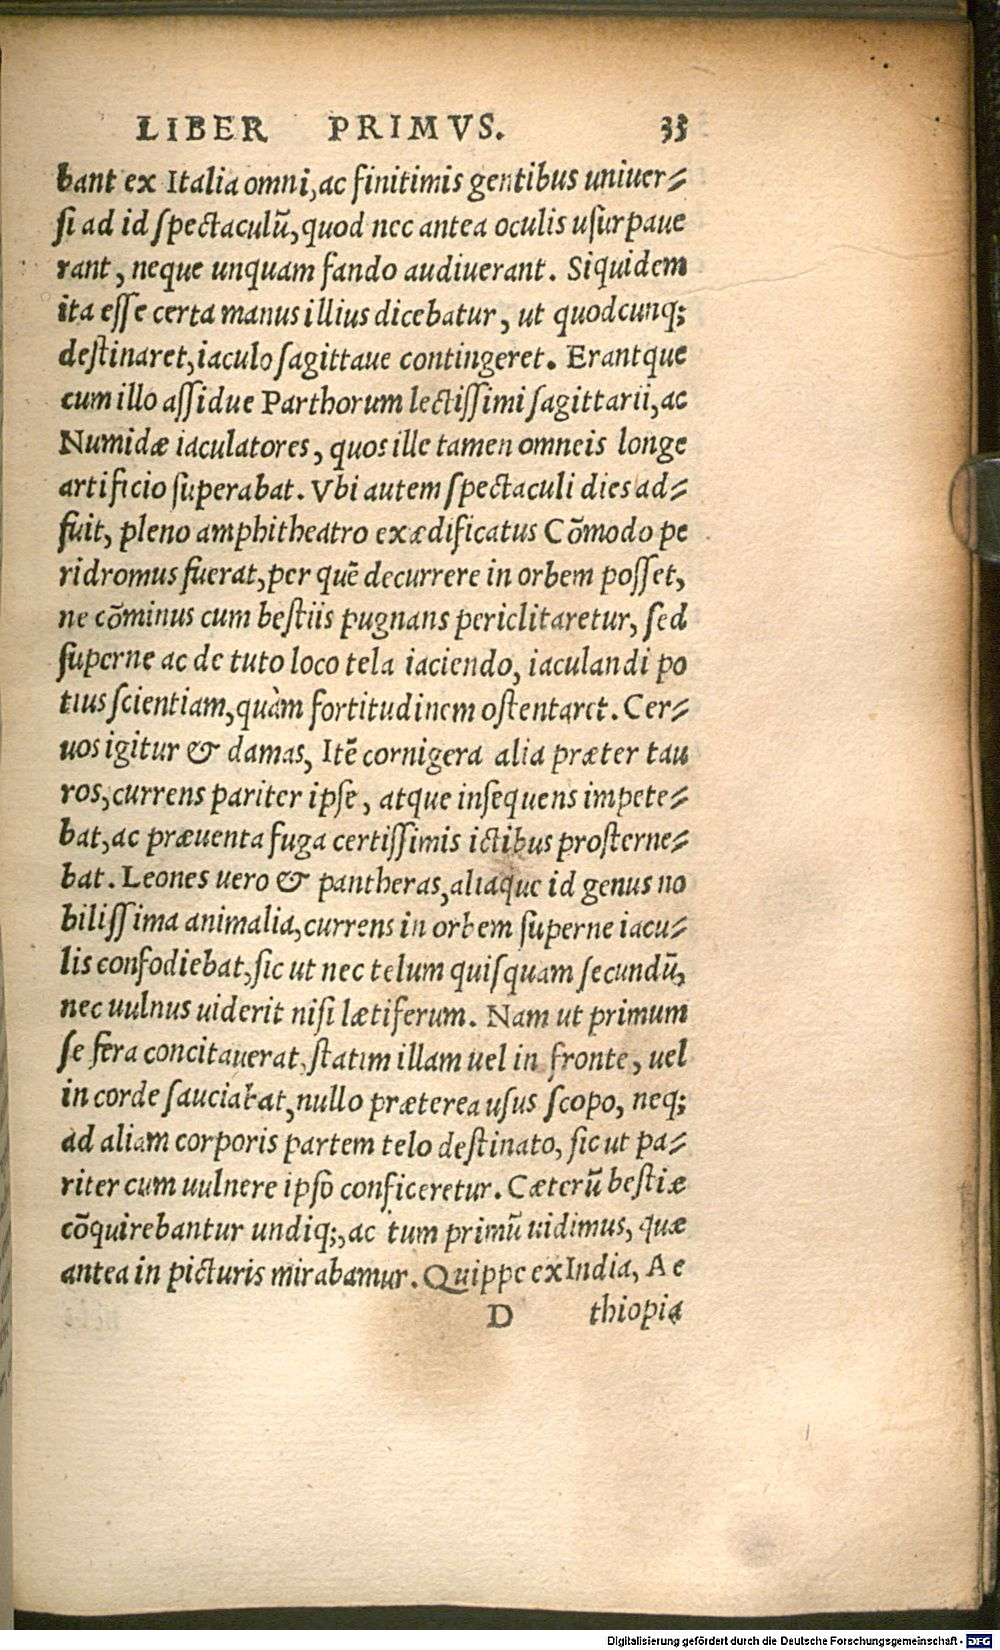 LIBER PRIMVS. 33
bant ex Italia omni, ac finitimis gentibus uniuer⸗
ſi ad id ſpectaculū, quod nec antea oculis uſurpaue
rant, neque unquam fando audiuerant. Siquidem
ita eſſe certa manus illius dicebatur, ut quodcunq;
deſtinaret, iaculo ſagittaue contingeret. Erantque
cum illo aſſidue Parthorum lectiſſimi ſagittarii, ac
Numidæ iaculatores, quos ille tamen omneis longe
artificio ſuperabat. Vbi autem ſpectaculi dies ad⸗
fuit, pleno amphitheatro exædificatus Cōmodo pe
ridromus fuerat, per quē decurrere in orbem poſſet,
ne cōminus cum beſtiis pugnans periclitaretur, ſed
ſuperne ac de tuto loco tela iaciendo, iaculandi po
tius ſcientiam, quàm fortitudinem oſtentaret. Cer⸗
uos igitur & damas, Itē cornigera alia præter tau
ros, currens pariter ipſe, atque inſequens impete⸗
bat, ac præuenta fuga certiſſimis ictibus proſterne⸗
bat. Leones uero & pantheras, aliaque id genus no
biliſſima animalia, currens in orbem ſuperne iacu⸗
lis confodiebat, ſic ut nec telum quiſquam ſecundū,
nec uulnus uiderit niſi lætiferum. Nam ut primum
ſe fera concitauerat, ſtatim illam uel in fronte, uel
in corde ſauciabat, nullo præterea uſus ſcopo, neq;
ad aliam corporis partem telo deſtinato, ſic ut pa⸗
riter cum uulnere ipſo conficeretur. Cæterū beſtiæ
cōquirebantur undiq;, ac tum primū uidimus, quæ
antea in picturis mirabamur. Quippe ex India, Ae
D thiopia
Digitalisierung gefördert durch die Deutsche Forschungsgemeinschaft - DFG